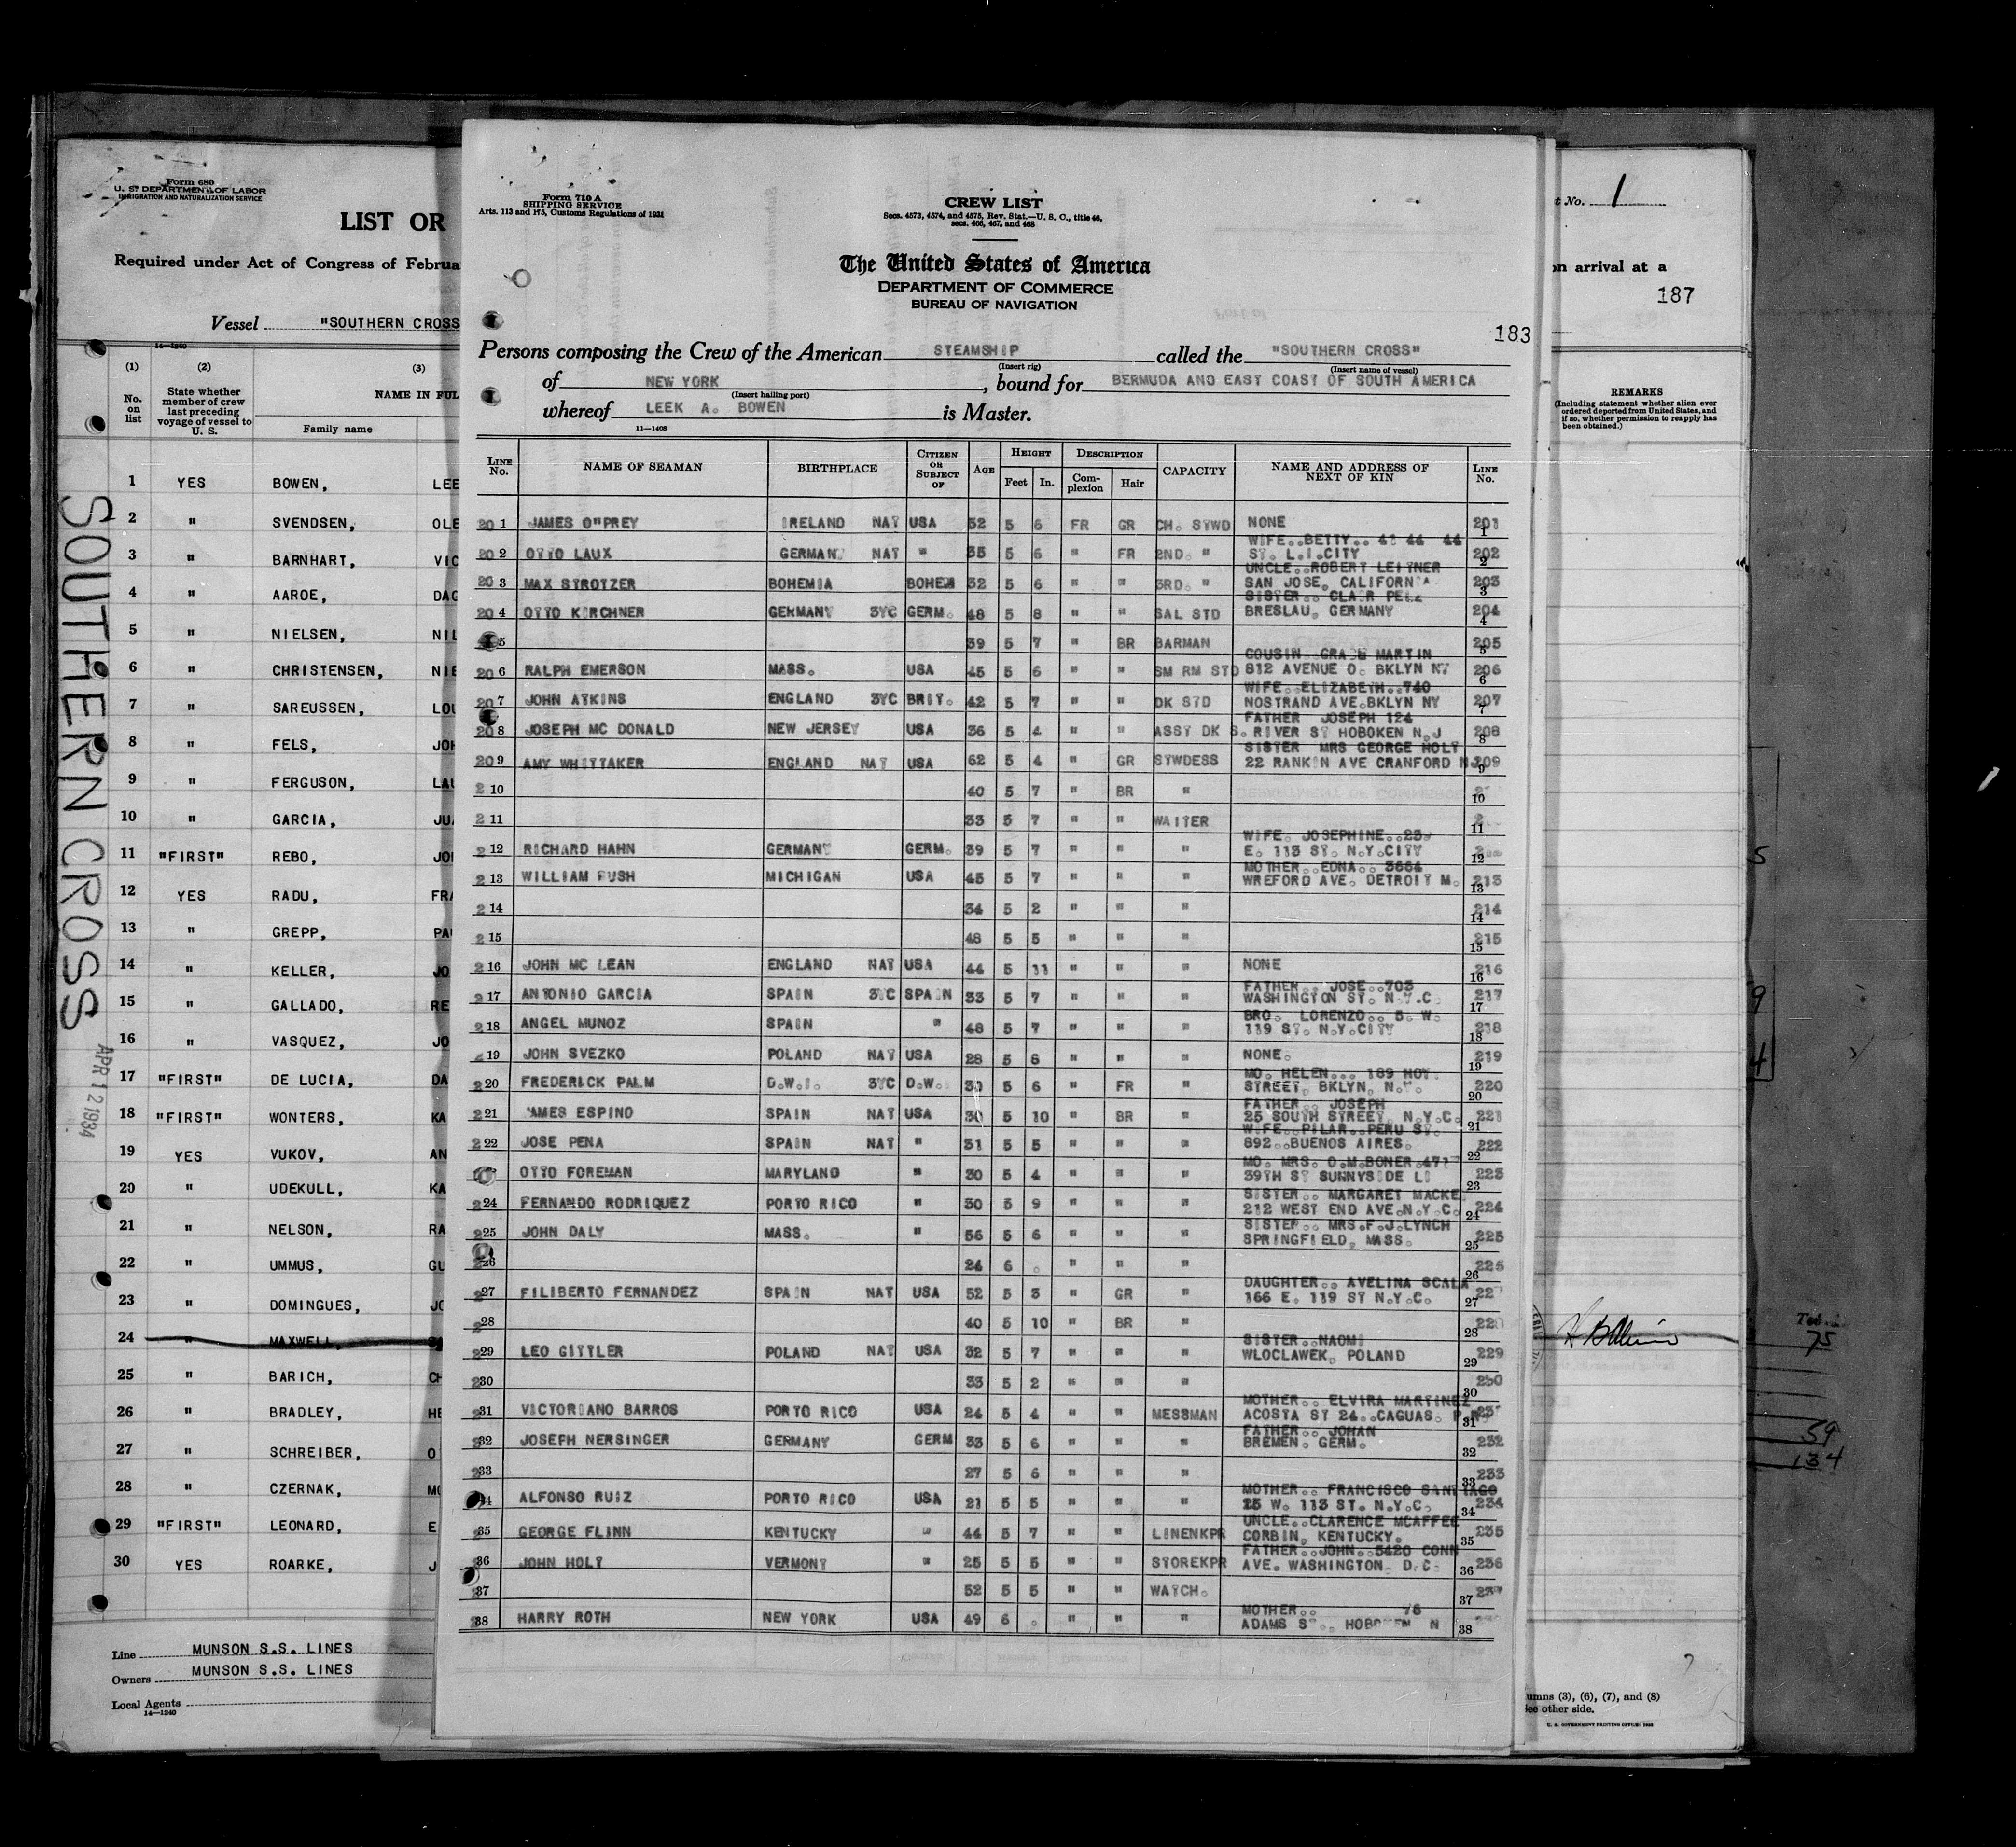 Form 680
U. S. DEPARTMENT OF LABOR
IMMIGRATION AND NATURALIZATION SERVICE
LIST OR
Required under Act of Congress of Februa
Vessel "SOUTHERN CROSS
14—1240
(1) (2) (3)
No. on list
State whether member of crew last preceding voyage of vessel to U. S.
NAME IN FUL
Family name
1 YES BOWEN, LEE
2 " SVENDSEN, OLE
3 " BARNHART, VIC
4 " AAROE, DAG
5 " NIELSEN, NIL
6 " CHRISTENSEN, NIE
7 " SAREUSSEN, LOU
8 " FELS, JOH
9 " FERGUSON, LAU
10 " GARCIA, JUA
11 "FIRST" REBO, JOH
12 YES RADU, FRA
13 " GREPP, PAU
14 " KELLER, JO
15 " GALLADO, RE
16 " VASQUEZ, JO
17 "FIRST" DE LUCIA, DA
18 "FIRST" WONTERS, KA
19 YES VUKOV, AN
20 " UDEKULL, KA
21 " NELSON, RA
22 " UMMUS, GU
23 " DOMINGUES, JO
24 " MAXWELL,
25 " BARICH, CH
26 " BRADLEY, HE
27 " SCHREIBER, O
28 " CZERNAK, MO
29 "FIRST" LEONARD, E
30 YES ROARKE, J
Line MUNSON S.S. LINES
Owners MUNSON S.S. LINES
Local Agents
14—1240
SOUTHERN CROSS
APR 12 1934
Form 710 A
SHIPPING SERVICE
Arts. 113 and 115, Customs Regulations of 1931
CREW LIST
Secs. 4573, 4574, and 4575, Rev. Stat.—U. S. C., title 46,
secs. 466, 467, and 468
The United States of America
DEPARTMENT OF COMMERCE
BUREAU OF NAVIGATION
183
Persons composing the Crew of the American STEAMSHIP called the "SOUTHERN CROSS"
(Insert rig) (Insert name of vessel)
of NEW YORK, bound for BERMUDA AND EAST COAST OF SOUTH AMERICA
(Insert hailing port)
whereof LEEK A. BOWEN is Master.
11—1408
LINE No. NAME OF SEAMAN BIRTHPLACE CITIZEN OR SUBJECT OF AGE HEIGHT Feet In. DESCRIPTION Complexion Hair CAPACITY NAME AND ADDRESS OF NEXT OF KIN LINE No.
201 JAMES O"PREY IRELAND NAT USA 52 5 6 FR GR CH. STWD NONE 201 1
WIFE..BETTY.. 41 44 44
202 OTTO LAUX GERMAN NAT " 35 5 6 " FR 2ND. " ST. L.I.CITY 202 2
UNCLE..ROBERT LEITNER
203 MAX STROTZER BOHEMIA BOHEM 32 5 6 " " 3RD. " SAN JOSE, CALIFORN A 203 3
SISTER.. CLAIR
204 OTTO KIRCHNER GERMANY 3YC GERM. 48 5 8 " " SAL STD BRESLAU, GERMANY 204 4
5 39 5 7 " BR BARMAN 205 5
COUSIN GRACE MARTIN
206 RALPH EMERSON MASS. USA 45 5 6 " " SM RM STD 812 AVENUE O. BKLYN NY 206 6
WIFE..ELIZABETH..740
207 JOHN ATKINS ENGLAND 3YC BRIT. 42 5 7 " " DK STD NOSTRAND AVE.BKLYN NY 207 7
FATHER JOSEPH 124
208 JOSEPH MC DONALD NEW JERSEY USA 36 5 4 " " ASST DK S. RIVER ST HOBOKEN N.J 208 8
SISTER MRS GEORGE HOLT
209 AMY WHITTAKER ENGLAND NAT USA 62 5 4 " GR STWDESS 22 RANKIN AVE CRANFORD NJ 209 9
2 10 40 5 7 " BR " 10
2 11 33 5 7 " " WAITER 11
WIFE. JOSEPHINE..
2 12 RICHARD HAHN GERMANY GERM. 39 5 7 " " " E. 113 ST. N.Y.CITY 12
MOTHER..EDNA.. 3664
2 13 WILLIAM BUSH MICHIGAN USA 45 5 7 " " " WREFORD AVE. DETROIT M. 213 13
2 14 34 5 2 " " " 214 14
2 15 48 5 5 " " " 215 15
2 16 JOHN MC LEAN ENGLAND NAT USA 44 5 11 " " " NONE 216 16
FATHER.. JOSE..703
2 17 ANTONIO GARCIA SPAIN 3YC SPAIN 33 5 7 " " " WASHINGTON ST. N.Y.C. 217 17
BRO. LORENZO.. 5. W.
2 18 ANGEL MUNOZ SPAIN " 48 5 7 " " " 119 ST. N.Y.CITY 218 18
2 19 JOHN SVEZKO POLAND NAT USA 28 5 6 " " " NONE. 219 19
MO. HELEN... 189 HOY.
2 20 FREDERICK PALM D.W.I. 3YC D.W. 5 6 " FR " STREET, BKLYN, N.Y. 220 20
FATHER.. JOSEPH
2 21 AMES ESPINO SPAIN NAT USA 30 5 10 " BR " 25 SOUTH STREET, N.Y.C. 221 21
W.FE..PILAR..PERU ST.
2 22 JOSE PENA SPAIN NAT " 31 5 5 " " " 892..BUENOS AIRES. 222 22
MO. MRS. O.M.BONER.47
OTTO FOREMAN MARYLAND " 30 5 4 " " " 39TH ST SUNNYSIDE LI 223 23
SISTER.. MARGARET MACKE.
2 24 FERNANDO RODRIQUEZ PORTO RICO " 30 5 9 " " " 212 WEST END AVE.N.Y.C. 224 24
SISTER.. MRS.F.J.LYNCH
225 JOHN DALY MASS. " 56 5 6 " " " SPRINGFIELD, MASS. 225 25
226 24 6 . " " " 226 26
DAUGHTER.. AVELINA SCALA
227 FILIBERTO FERNANDEZ SPAIN NAT USA 52 5 3 " GR " 166 E. 119 ST N.Y.C. 22 27
228 40 5 10 " BR " 28
SISTER..NAOMI
229 LEO GITTLER POLAND NAT USA 32 5 7 " " " WLOCLAWEK, POLAND 229 29
230 33 5 2 " " " 230 30
MOTHER.. ELVIRA MARTINEZ
231 VICTORIANO BARROS PORTO RICO USA 24 5 4 " " MESSMAN ACOSTA ST 24..CAGUAS. P.R. 231 31
FATHER.. JOHAN
232 JOSEPH NERSINGER GERMANY GERM 33 5 6 " " " BREMEN. GERM. 232 32
233 27 5 6 " " " 233 33
MOTHER.. FRANCISCO SANTIAGO
34 ALFONSO RUIZ PORTO RICO USA 21 5 5 " " " 25 W. 113 ST. N.Y.C. 234 34
UNCLE..CLARENCE MCAFFEE
235 GEORGE FLINN KENTUCKY " 44 5 7 " " LINENKPR CORBIN, KENTUCKY. 235 35
FATHER..JOHN..5420 CONN
36 JOHN HOLT VERMONT " 25 5 5 " " STOREKPR AVE. WASHINGTON. D.C. 236 36
237 52 5 5 " " WATCH. 237 37
MOTHER.. 76
238 HARRY ROTH NEW YORK USA 49 6 . " " " ADAMS S .. HOBOKEN N 38
t No. 1
on arrival at a
187
REMARKS
(Including statement whether alien ever ordered deported from United States, and if so, whether permission to reapply has been obtained.)
5
9
4
75
59
134
umns (3), (6), (7), and (8)
See other side.
U. S. GOVERNMENT PRINTING OFFICE: